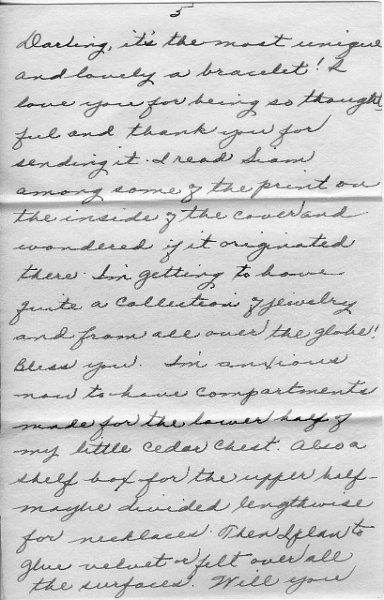 5
Darling, it's the most unique
and lovely a bracelet! I
love you for being so thought
ful and thank you for
sending it. I read Siam
among some of the print on
the inside of the cover and
wondered if it originated
there. I'm getting to have
quite a collection of jewelry
and from all over the globe!
Bless you. I'm anxious
now to have compartments
made for the lower half of
my little cedar chest. Also a
shelf box for the upper half -
maybe divided lengthwise
for necklaces. Then I plan to
glue velvet or felt over all
the surfaces. Will you